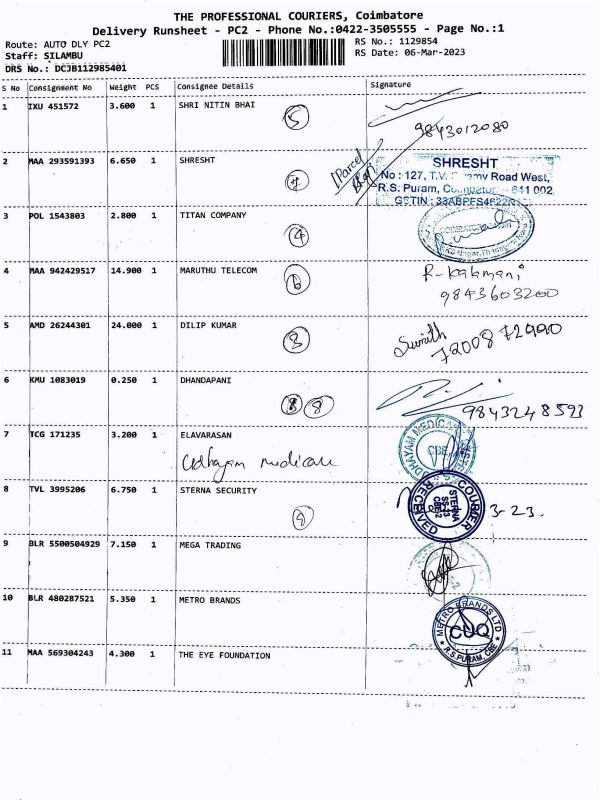 THE PROFESSIONAL COURIERS, Coimbatore
Delivery Runsheet - PC2 - Phone No.:0422-3505555 - Page No.:1
Route: AUTO DLY PC2 RS No.: 1129854
Staff: SILAMBU RS Date: 06-Mar-2023
DRS No.: DCJB112985401
S No Consignment No Weight PCS Consignee Details Signature
1 IXU 451572 3.600 1 SHRI NITIN BHAI
5 9843012080
2 MAA 293591393 6.650 1 SHRESHT
(Parcel
SHRESHT
No : 127, T.V. Road West,
R.S. Puram, 641 002
GSTIN :
3 POL 1543803 2.800 1 TITAN COMPANY
4
4 MAA 942429517 14.900 1 MARUTHU TELECOM
6 9843603200
5 AMD 26244301 24.000 1 DILIP KUMAR
3 72008 72990
6 KMU 1083019 0.250 1 DHANDAPANI
8 9843248593
7 TCG 171235 3.200 1 ELAVARASAN
Udhayam medicare
UDHAYAM MEDICARE
CBE
8 TVL 3995206 6.750 1 STERNA SECURITY
9
COURIER
STERNA
RECEIVED
3-23.
9 BLR 5500504929 7.150 1 MEGA TRADING
10 BLR 480287521 5.350 1 METRO BRANDS
METRO BRANDS LTD
R.S.PURAM, CBE
11 MAA 569304243 4.300 1 THE EYE FOUNDATION